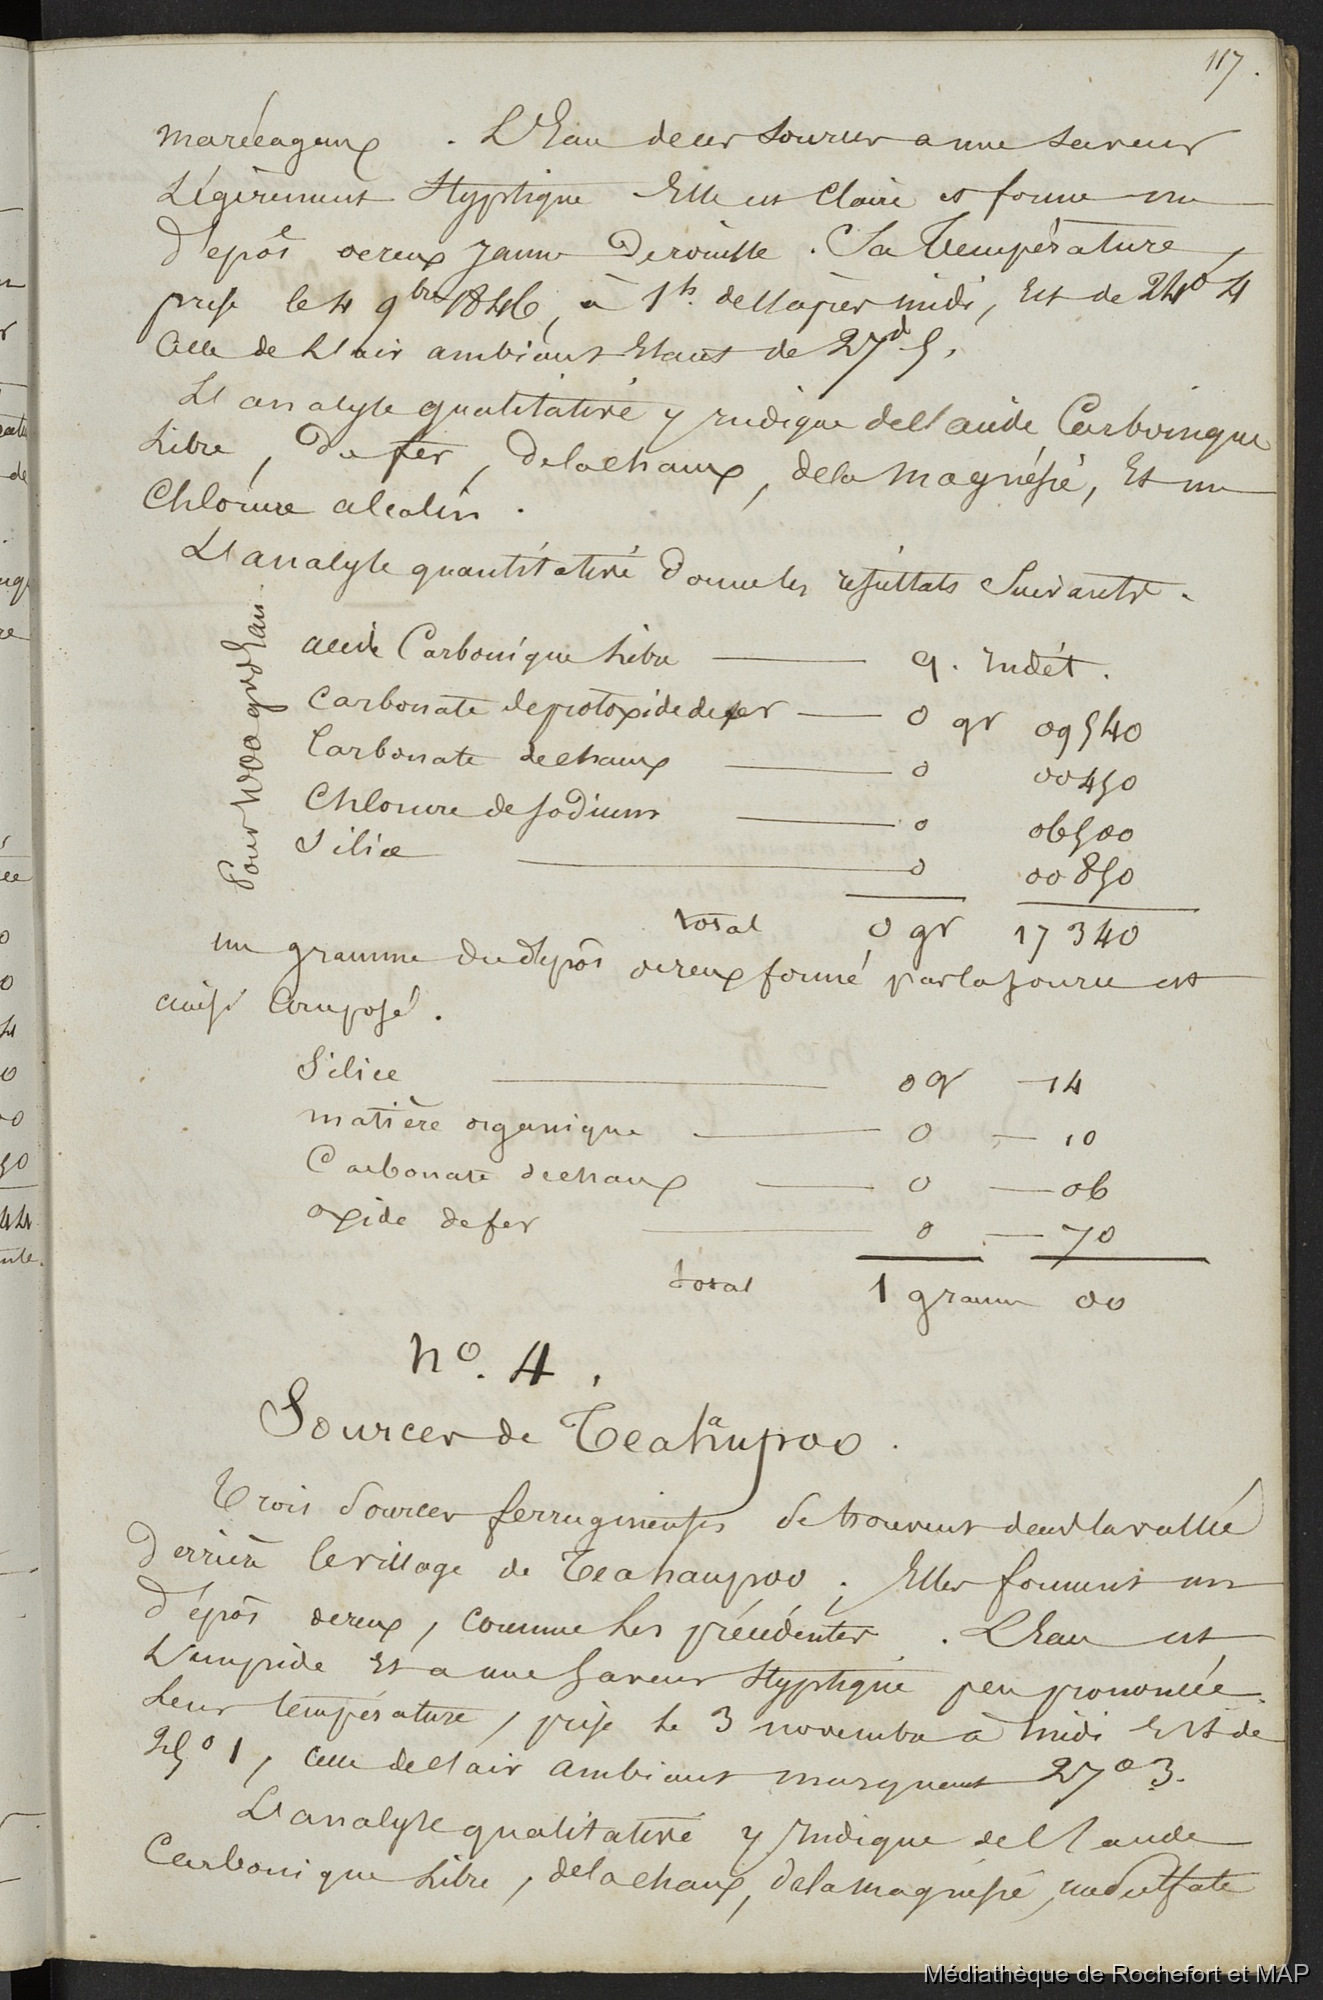 117.
maréeageux. L'Eau de ces sources a une saveur
Légèrement Styptique Elle est Claire et forme un
dépôt ocreux jaune de rouille. Sa Température,
prise le 4 9bre 1846, à 1h. de l'après midi, Est de 24° 4
Celle de l'air ambiant Etant de 27d 5.
L'analyse qualitative y indique de l'acide Carbonique
Libre, du fer, de la chaux, de la magnésie, Et un
Chlorure alcalin.
L'analyse quantitative donne les résultats Suivants.
Pour 1000 gr d'Eau
acide Carbonique Libre — q. indét.
Carbonate de protoxide de fer — 0 gr 09540
Carbonate de chaux — 0 00450
Chlorure de sodium — 0 06500
Silice — 0 00850
total 0 gr 17340
un gramme du dépôt ocreux formé par la source est
ainsi Composé.
Silice — 0 gr — 14
matière organique — 0 — 10
Carbonate de chaux — 0 — 06
oxide de fer — 0 — 70
total 1 gramme 00
No. 4.
Sources de Teahaupoo.
Trois Sources ferrugineuses se trouvent dans la vallée
derrière le village de Teahaupoo. Elles forment un
dépôt ocreux, comme les précédentes. L'Eau est
Limpide Et a une saveur Styptique peu prononcée.
Leur température, prise le 3 novembre à midi Est de
25° 1, celle de l'air ambiant marquant 27° 3.
L'analyse qualitative y Indique de l'acide
Carbonique Libre, de la chaux, de la magnésie, un sulfate
Médiathèque de Rochefort et MAP